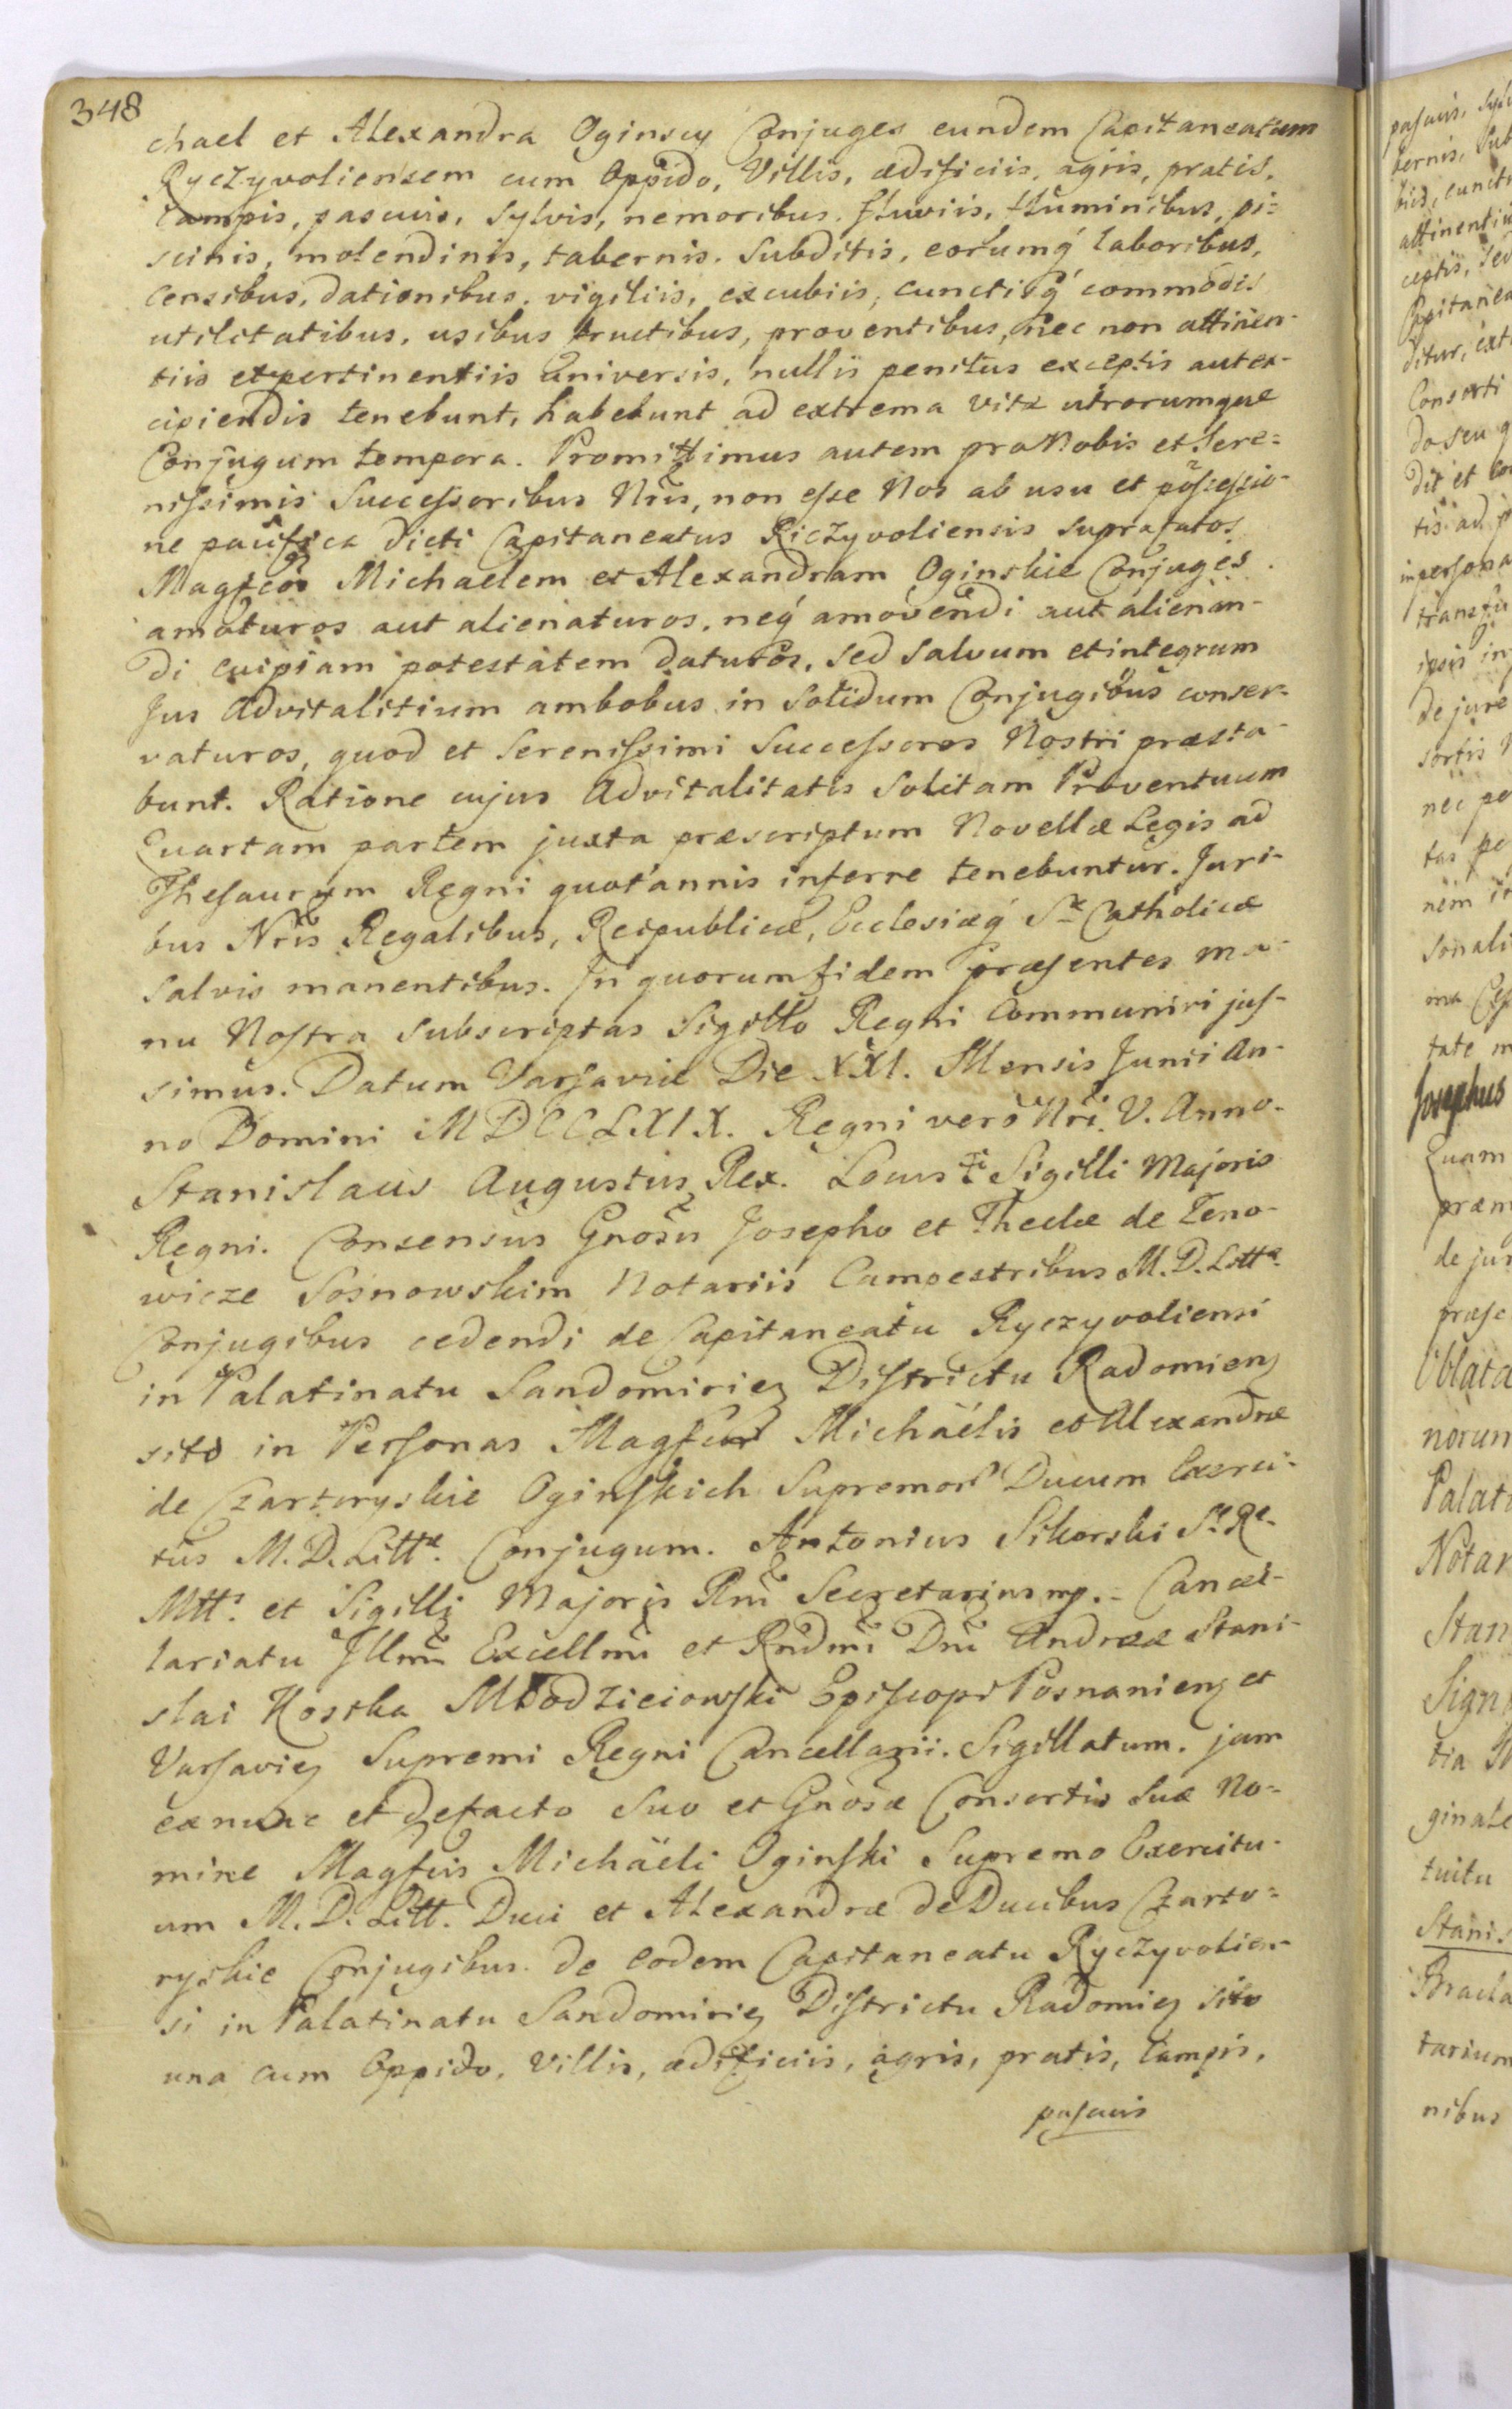 348
chael et Alexandra Oginscy Conjuges eundem Capitaneatum
Ryczyvoliensem cum Oppido, Villis, ædificiis, agris, pratis,
Campis, pascuis, Sylvis, nemoribus, fluviis, fluminibus, pi=
scinis, molendinis, tabernis, Subditis, eorumq́ laboribus,
Censibus, dationibus, vigiliis, excubiis, cunctisq́ commodis
utilitatibus, usibus fructibus, proventibus, nec non attinen-
tiis et pertinentiis Universis, nullis penitus exceptis aut ex-
cipiendis tenebunt, habebunt ad extrema vitæ utrorumque
Conjugum tempora. Promittimus autem pro Nobis et Sere=
nissimis Successoribus Nris, non esse Nos ab usu et possessio-
ne pacifica dicti Capitaneatus Riczyvoliensis suprafatos
Magfcos Michaelem et Alexandram Oginskie Conjuges
amoturos aut alienaturos, neq́ amovendi aut alienan-
di cuipiam potestatem daturos, sed salvum et integrum
Jus Advitalitium ambobus in Solidum Conjugibus conser-
vaturos, quod et Serenissimi Successores Nostri præsta-
bunt. Ratione cujus Advitalitatis Solitam Proventuum
Quartam partem juxta præscriptum Novellæ Legis ad
Thesaurum Regni quotannis inferre tenebuntur. Juri-
bus Nris Regalibus, Reipublicæ, Ecclesiæq́ Sæ Catholicæ
salvis manentibus. In quorum fidem præsentes ma-
nu Nostra subscriptas Sigillo Regni Communiri jus-
simus. Datum Varsaviæ Die XXI. Mensis Junii An-
no Domini MDCCLXIX. Regni vero Nri V. Anno.
Stanislaus Augustus Rex. Locus Sigilli Majoris
Regni. Consensus Gnosis Josepho et Theclæ de Zeno-
wicze Sosnowskim Notariis Camoestribus M. D. Littæ.
Conjugibus cedendi de Capitaneatu Ryczyvoliensi
in Palatinatu Sandomirieṅ Districtu Radomieṅ
sito in Personas Magfcor Michaëlis et Alexandræ
de Czartoryskie Oginskich Supremor Ducum Exerci-
tus M. D. Littæ. Conjugum. Antonius Sikorski Sæ Ræ
Mttis. et Sigilli Majoris Rni Secretarius mp. Cancel-
lariatu Illmi Excellmi et Rndmi Dni Andreæ Stani-
slai Kostka Młodzieiowski Episcopi Posnanieṅ et
Varsavieṅ Supremi Regni Cancellarii. Sigillatum. jam
exnunc et defacto Suo et Gnosæ Consortis Suæ No=
mine Magfcis Michäeli Oginski Supremo Exercitu-
um M. D. Litt. Duci et Alexandræ de Ducibus Czarto=
ryskie Conjugibus de eodem Capitaneatu Ryczyvolien-
si in Palatinatu Sandomirieṅ Districtu Radomieṅ sito
una cum Oppido, Villis, ædificiis, agris, pratis, Campis,
pascuis